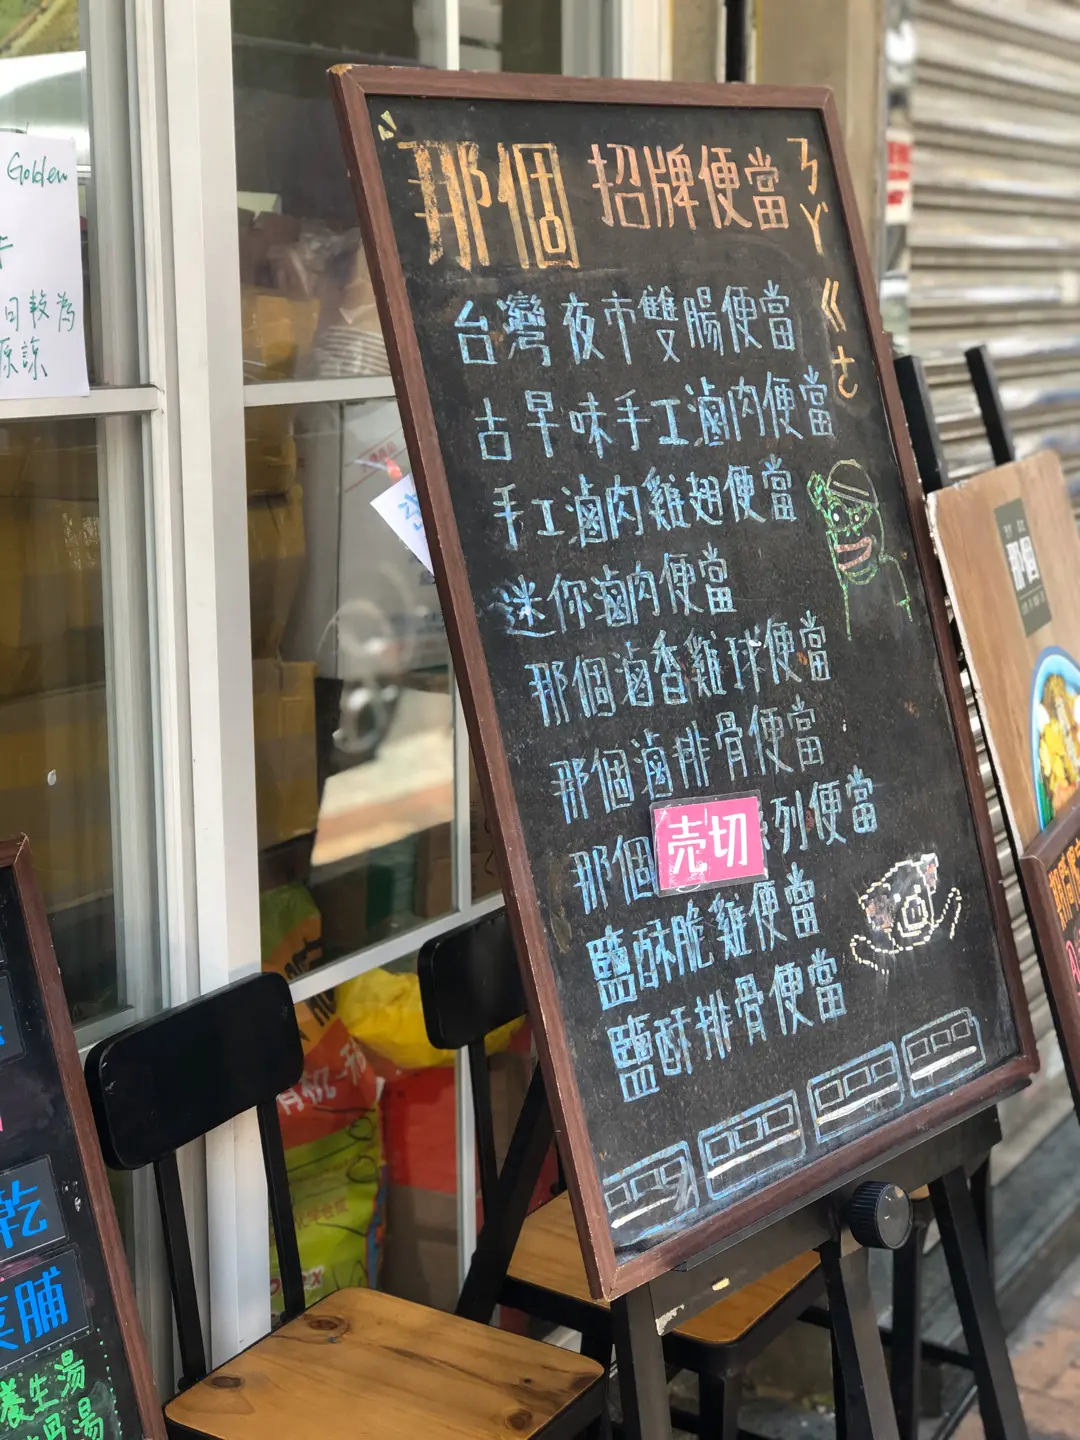 Golden
回較為
原諒
那個 招牌便當
ㄋㄚˇ ㄍㄜ
台灣夜市雙腸便當
古早味手工滷肉便當
手工滷肉雞翅便當
迷你滷肉便當
那個滷香雞球便當
那個滷排骨便當
那個 売切 列便當
鹽酥脆雞便當
鹽酥排骨便當
那個
有机一
乾
菜脯
養生湯
湯